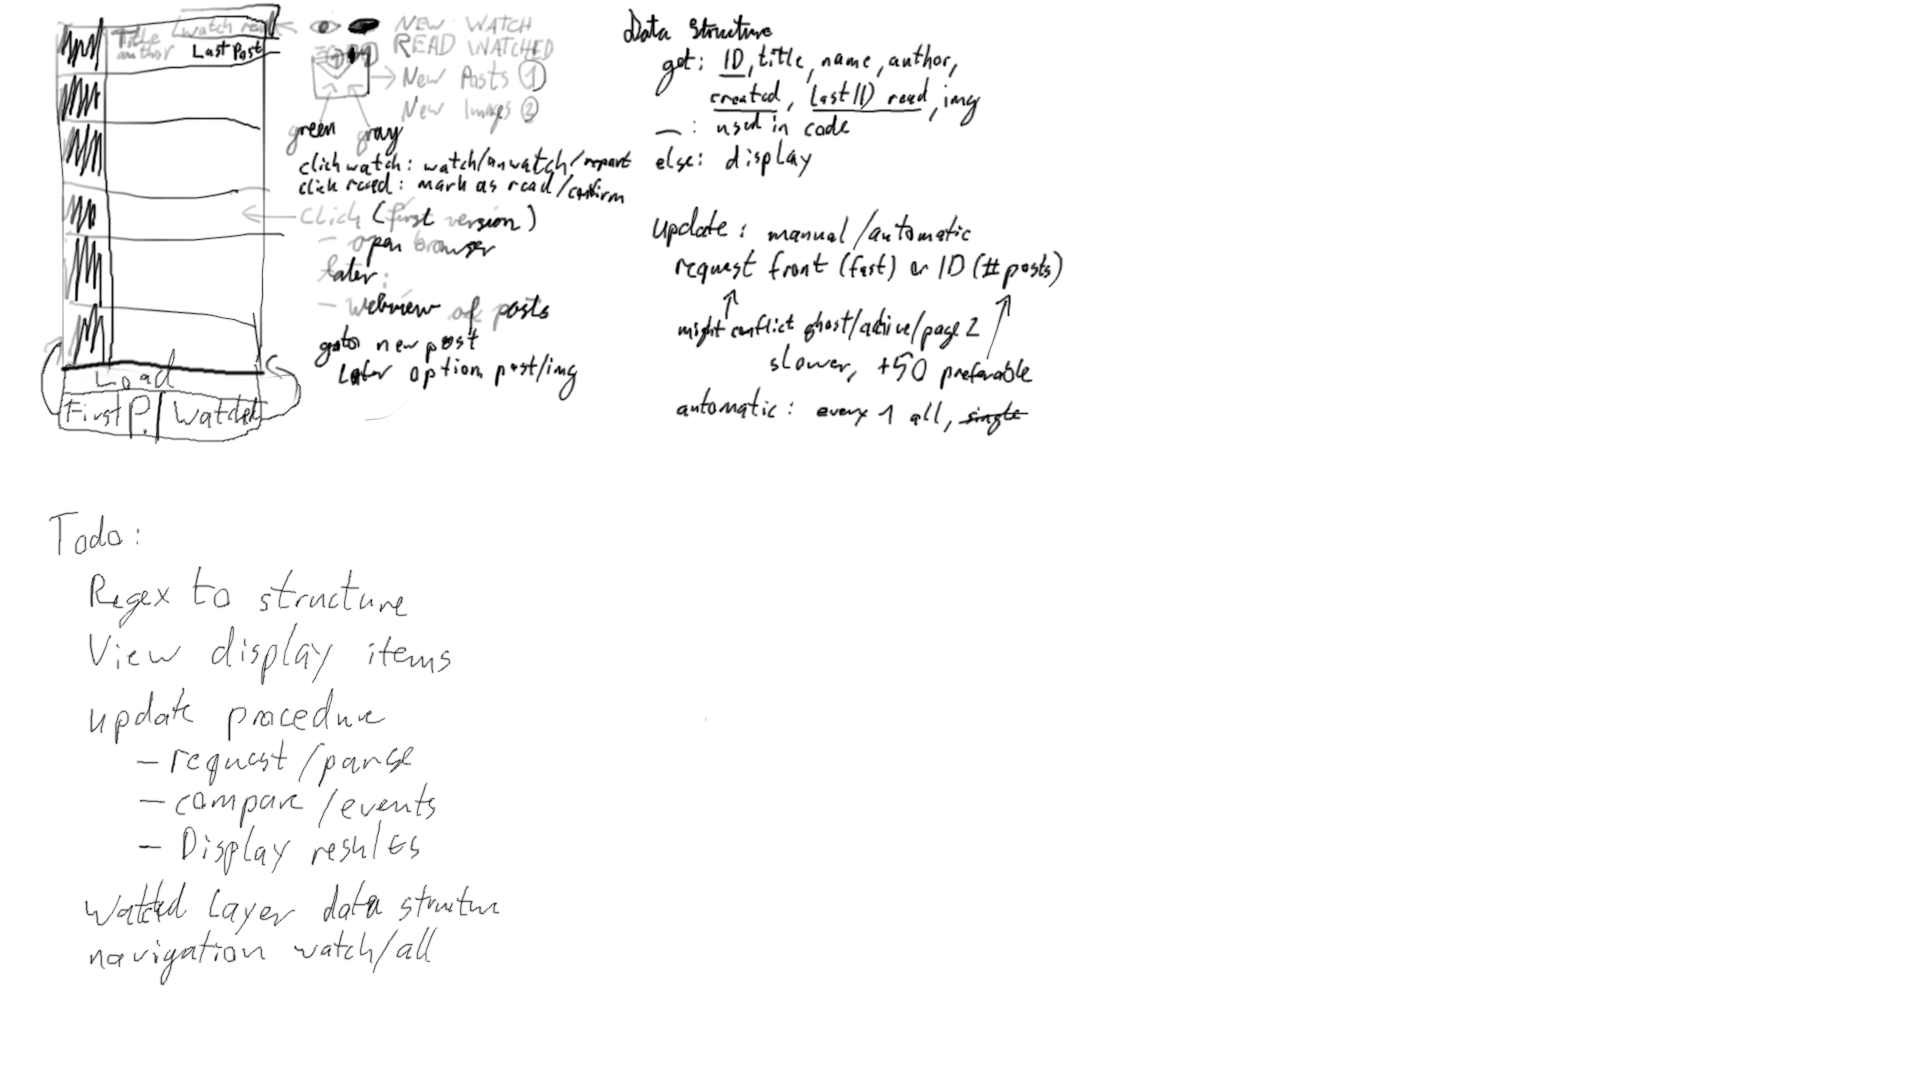 Title
author
watch read
Last Post
Load
First P. Watched
NEW WATCH
READ WATCHED
New Posts 1
New Images 2
green gray
click watch: watch/unwatch/repart
click readed: mark as read/confirm
Click (first version)
- open browser
later:
- webview of posts
goto new post
Later option post/img
Data Structure
get: ID, title, name, author,
created, Last ID read, img
_ : used in code
else: display
update: manual/automatic
request front (fast) or ID (# posts)
might conflict ghost/active/page 2
slower, +50 preferable
automatic: every 1 all, single
Todo:
Regex to structure
View display items
update procedure
- request/parse
- compare/events
- Display results
Watched Layer data structure
navigation watch/all